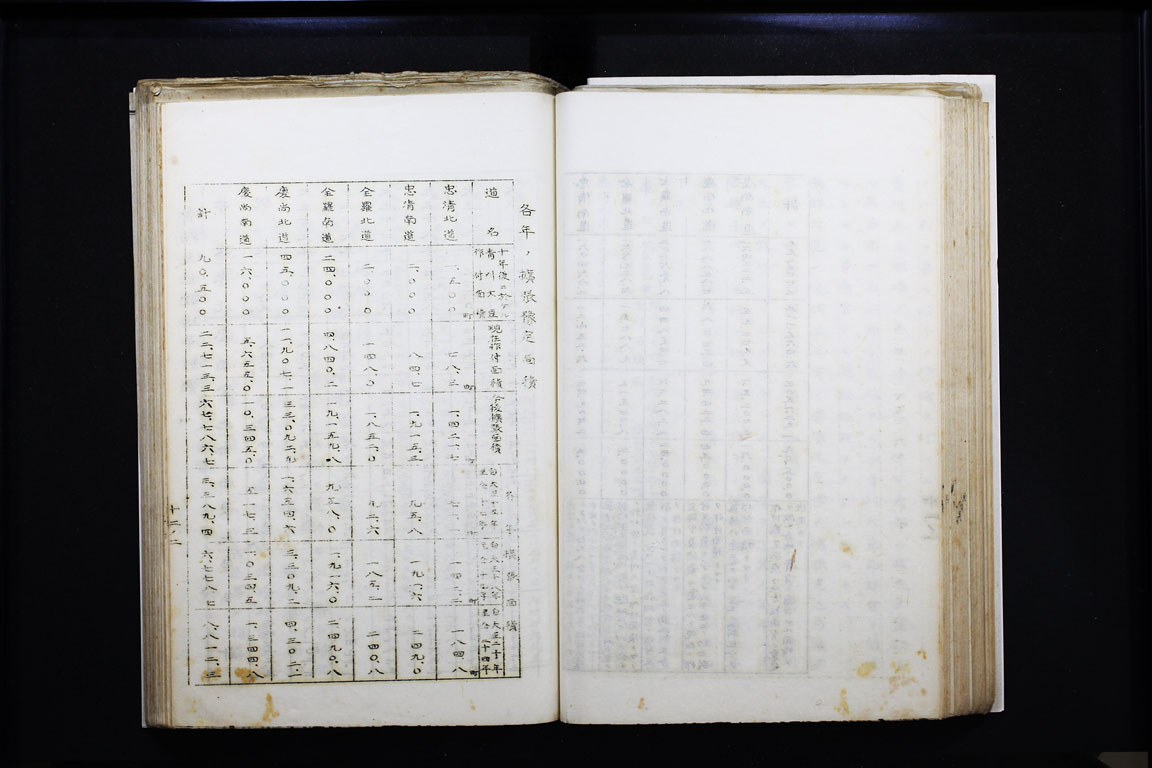 各年ノ擴張豫定面積
道名 十年後ニ於ケル青刈大豆作付面積 現在作付面積 今後擴張面積 各年擴張面積
自大正十五年至仝十七年 自大正十八年至仝十九年 自大正二十年至仝二十四年
町 町 町 町 町 町
忠清北道 一、五〇〇 七八、三 一、四二一、七 七一、一 一四二、二 一八四、八
忠清南道 二、〇〇〇 八四、七 一、九一五、三 九五、八 一九一、六 二四九、〇
全羅北道 二、〇〇〇 一四八、〇 一、八五二、〇 九二、六 一八五、二 二四〇、八
全羅南道 二四、〇〇〇 四、八四〇、二 一九、一五九、八 九五八、〇 一、九一六、〇 二、四九〇、八
慶尚北道 四五、〇〇〇 一一、九〇七、一 三三、〇九二、九 一、六五四、六 三、三〇九、二 四、三〇二、一
慶尚南道 一六、〇〇〇 五、六五五、〇 一〇、三四五、〇 五一七、三 一、〇三四、五 一、三四四、八
計 九〇、五〇〇 二二、七一三、三 六七、七八六、七 三、三八九、四 六、七七八、七 八、八一二、三